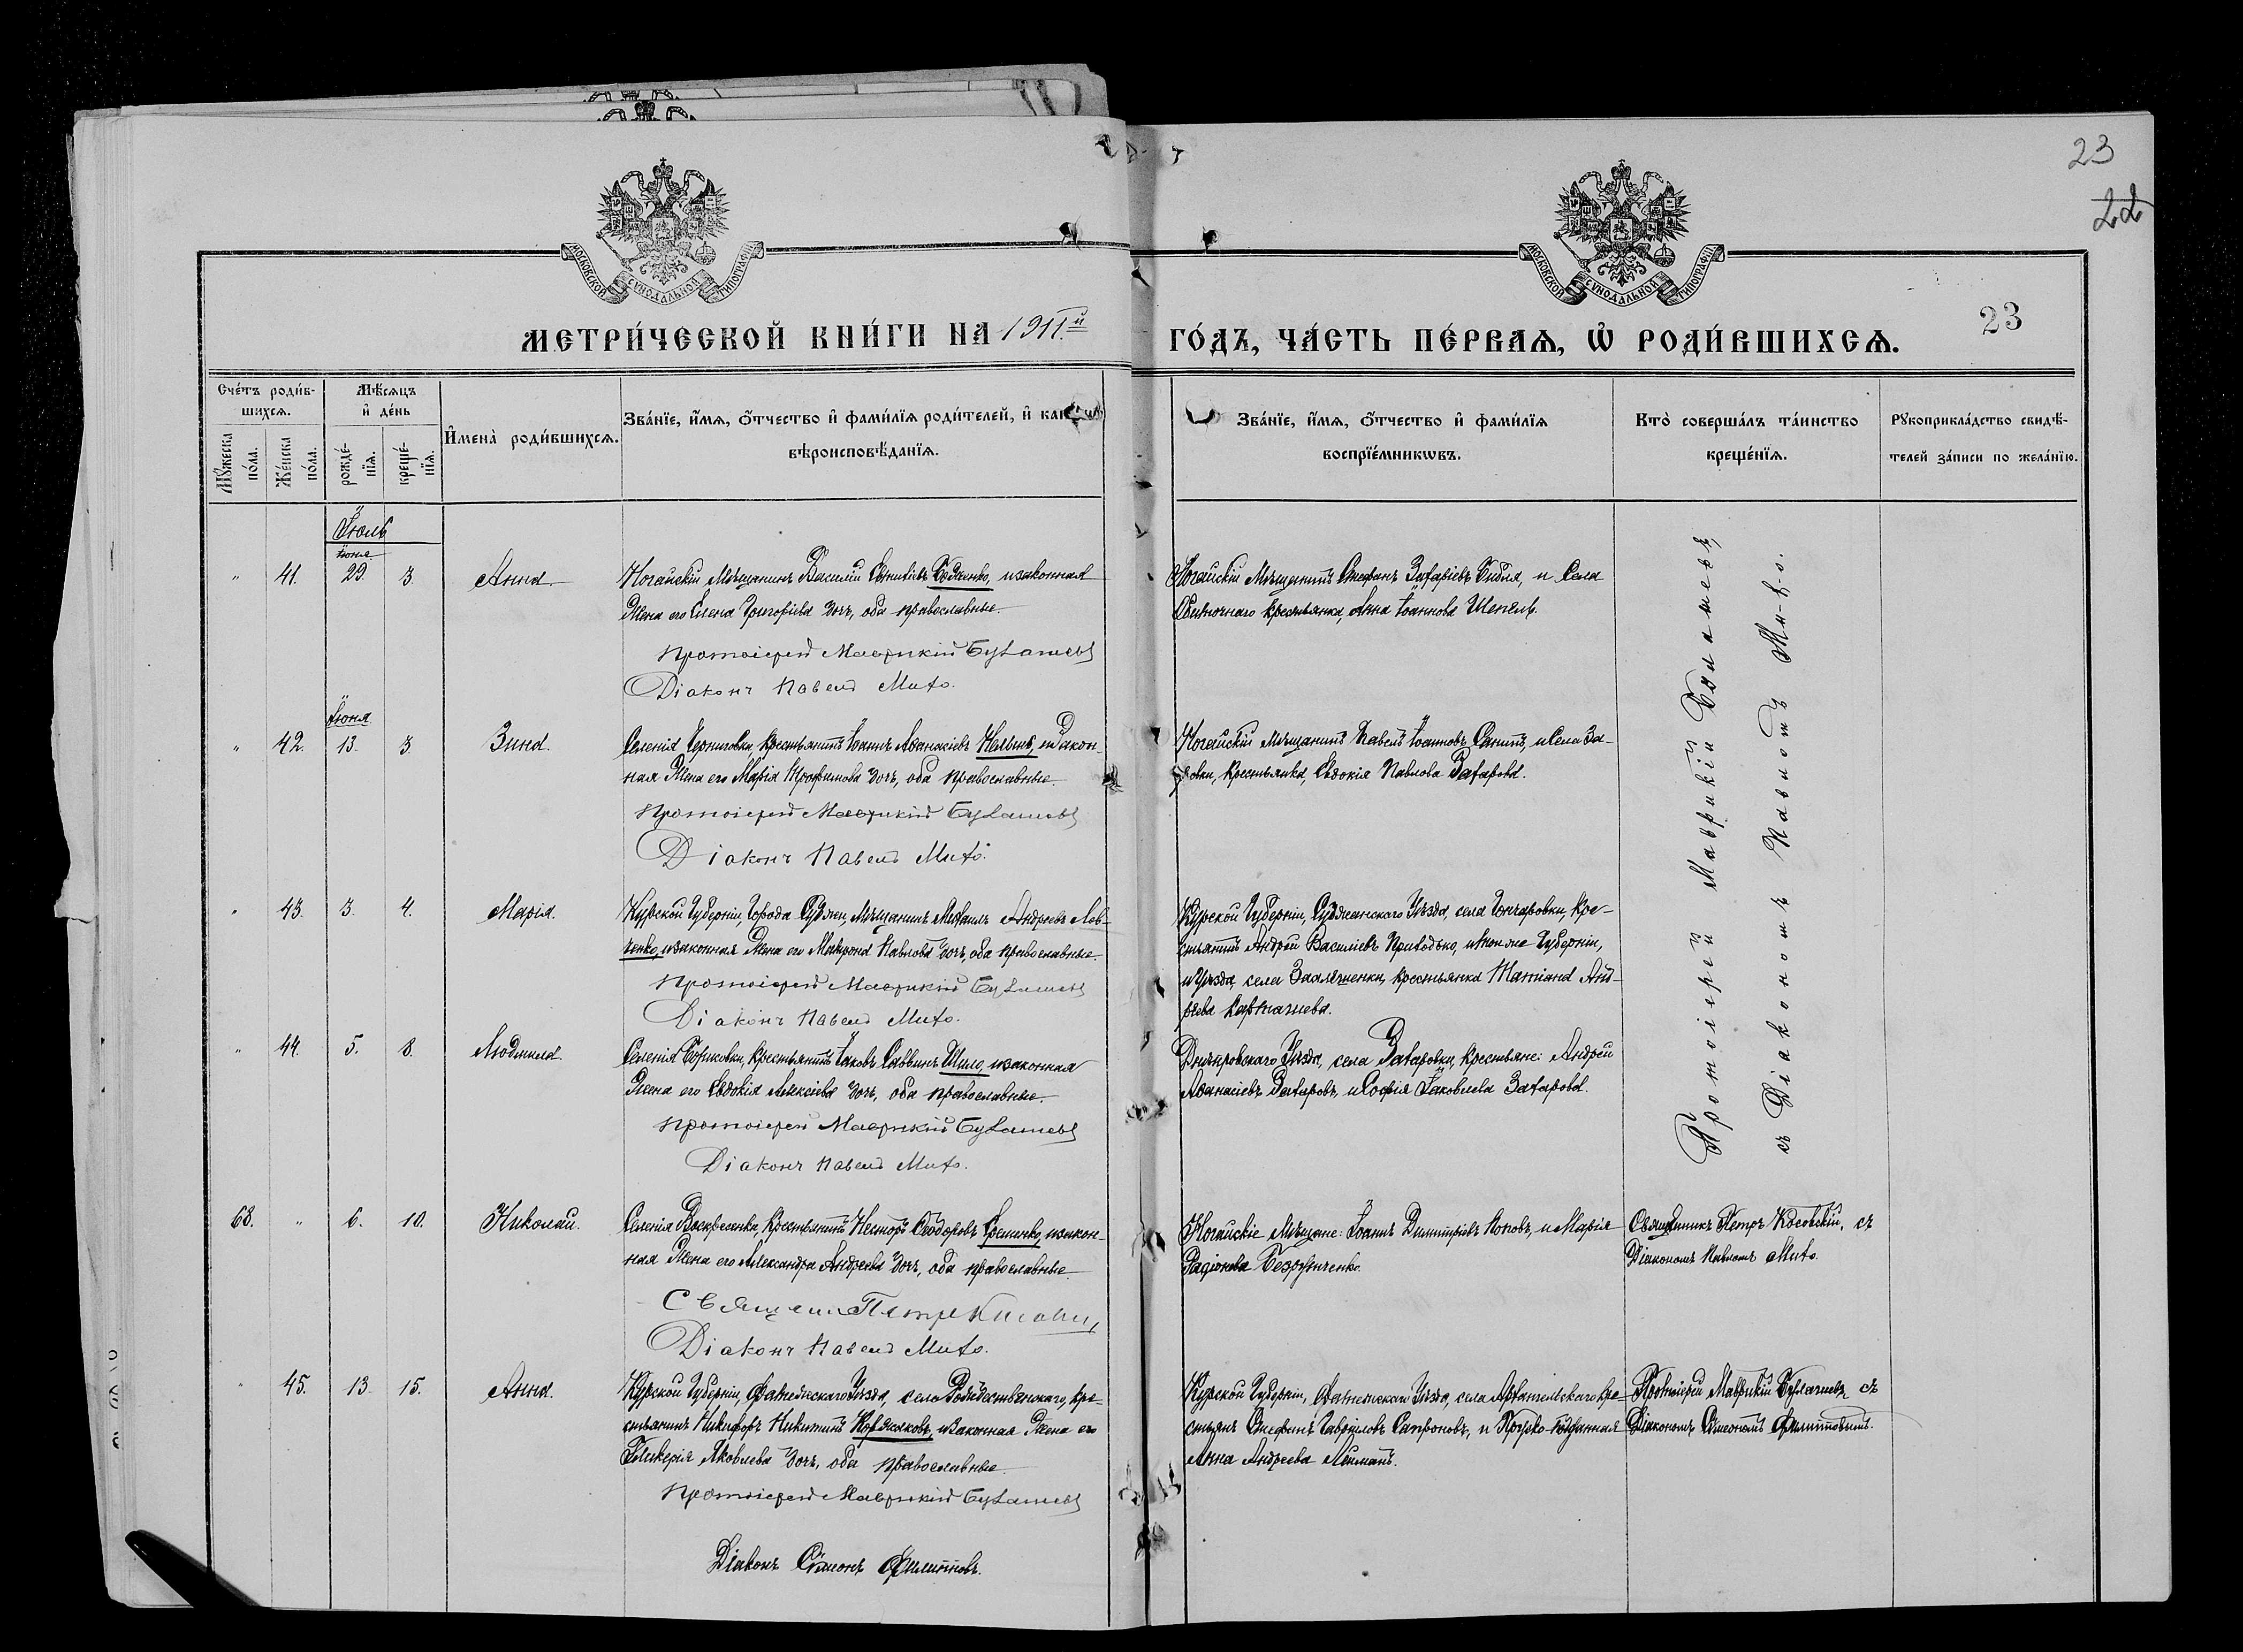 23
22
МОСКОВСКОЙ СѴНОДАЛЬНОЙ ТИПОГРАФІИ
МОСКОВСКОЙ СѴНОДАЛЬНОЙ ТИПОГРАФІИ
МЕТРИ́ЧЕСКОЙ КНИ́ГИ НА 1911.й ГО́ДЪ, ЧА́СТЬ ПЕ́РВАѦ, Ѡ РОДИ́ВШИХСѦ.
23
Сче́тъ роди́в-
шихсѧ.
Мѣ́сѧцъ
и҆ де́нь
Мꙋ́жеска
по́ла.
Же́нска
по́ла.
рожде́-
нїѧ.
креще́-
нїѧ.
И҆мена̀ роди́вшихсѧ.
Зва́нїе, и҆́мѧ, ѻ҆́тчество и҆ фами́лїѧ роди́телей, и҆
вѣроисповѣ́данїѧ.
Зва́нїе, и҆́мѧ, ѻ҆́тчество и҆ фами́лїѧ
воспрїе́мникѡвъ.
Кто̀ соверша́лъ та́инство
креще́нїѧ.
Рꙋкоприкла́дство свидѣ́-
телей за́писи по жела́нїю.
Іюль
іюня
" 41. 29. 3. Анна.
Ногайскій Мѣщанинъ Василій и законная
Жена его Елена Григоріева дочь, оба православные.
Протоіерей Маврикій Булашевъ
Діаконъ Павелъ Михо.
Ногайскій Мѣщанинъ Стефанъ Захаріевъ и Села
крестьянка, Анна Іоаннова Шепель.
Іюня
" 42. 13. 3 Зина.
Селенія Черниговки, Крестьянинъ Іоаннъ Аѳанасіевъ и закон-
ная Жена его Марія Трофимова дочь, оба православные.
Протоіерей Маврикій Булашевъ
Діаконъ Павелъ Михо.
Ногайскій Мѣщанинъ Павелъ Іоанновъ и Села За-
ровки, Крестьянка, Евдокія Павлова Захарова.
" 43. 3. 4. Марія.
Курской Губерніи, Города Суджи, Мѣщанинъ Михаилъ Андреевъ Лев-
ченко, и законная Жена его Матрона Павлова дочь, оба православные.
Протоіерей Маврикій Булашевъ
Діаконъ Павелъ Михо.
Курской Губерніи, Суджанскаго Уѣзда, села Гончаровки, Кре-
стьянинъ Андрей Василіевъ Приходько, и той же Губерніи,
и Уѣзда, села Заолешенки, крестьянка Татіана Анд-
реева Карташева.
" 44. 5. 8. Людмила.
Селенія Борисовки, Крестьянинъ Іаковъ Саввинъ Шило, и законная
Жена его Евдокія Алексіева дочь, оба православные.
Протоіерей Маврикій Булашевъ
Діаконъ Павелъ Михо.
Днѣпровскаго Уѣзда, села Захаровки, Крестьяне: Андрей
Аѳанасіевъ Захаровъ, и Софія Іаковлева Захарова.
Протоіерей Маврикій Булашевъ,
съ Діакономъ Павломъ Ми-х-о.
68. " 6. 10. Николай.
Селенія Воскресенка, Крестьянинъ Несторъ Ѳеодоровъ Еременко, и закон-
ная Жена его Александра Андреева дочь, оба православные.
Священ. Петръ
Діаконъ Павелъ Михо.
Ногайскіе Мѣщане: Іоаннъ Димитріевъ Поповъ, и Марія
Радіонова Безрученко.
Священникъ Петръ съ
Діакономъ Павломъ Михо.
" 45. 13. 15. Анна.
Курской Губерніи, Фатежскаго Уѣзда, села Рождественскаго, кре-
стьянинъ Никифоръ Никитинъ и законная Жена его
Гликерія Яковлева дочь, оба православные.
Протоіерей Маврикій Булашевъ
Діаконъ Сѵмеонъ Филипповъ.
Курской Губерніи, Фатежскаго Уѣзда, села Архангельскаго кре-
стьян. Стефанъ Гавріиловъ Сапроновъ, и Прусско-подданная
Анна Андреева Лейманъ.
Протоіерей Маврикій Булашевъ, съ
Діакономъ Сѵмеономъ Филипповымъ.